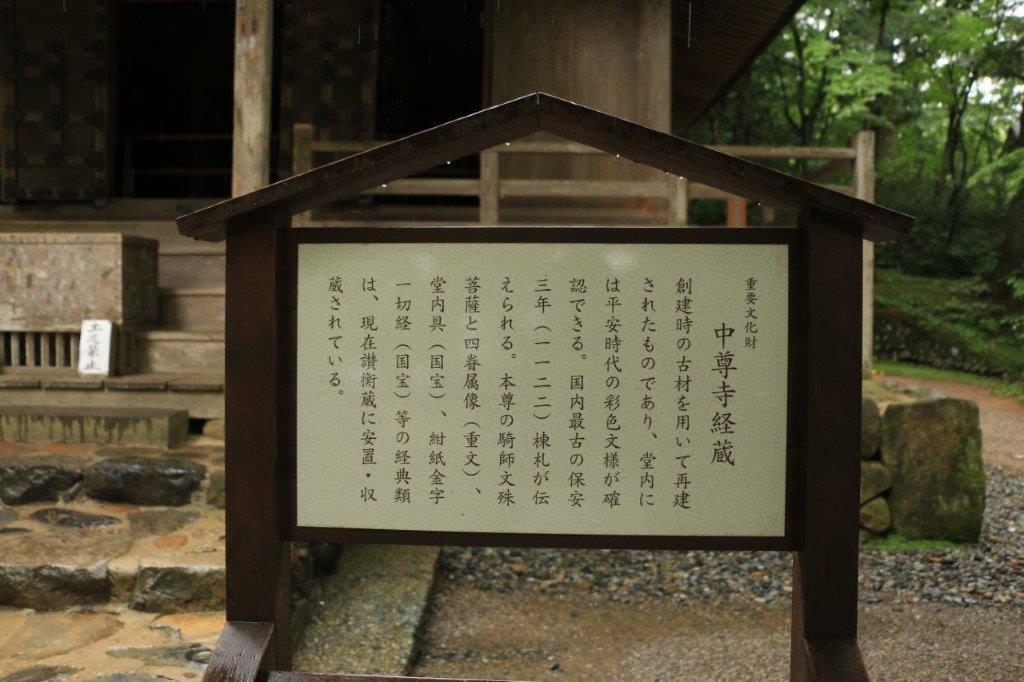 重要文化財
中尊寺経蔵
創建時の古材を用いて再建
されたものであり、堂内に
は平安時代の彩色文様が確
認できる。国内最古の保安
三年（一一二二）棟札が伝
えられる。本尊の騎師文殊
菩薩と四眷属像（重文）、
堂内具（国宝）、紺紙金字
一切経（国宝）等の経典類
は、現在讃衡蔵に安置・収
蔵されている。
土足禁止